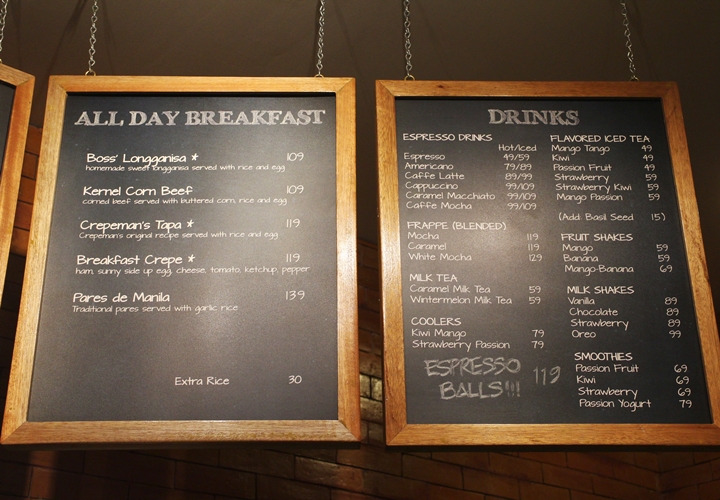 ALL DAY BREAKFAST
Boss' Longganisa * 109
homemade sweet longganisa served with rice and egg
Kernel Corn Beef 109
corned beef served with buttered corn, rice and egg
Crepeman's Tapa * 119
Crepeman's original recipe served with rice and egg
Breakfast Crepe * 119
ham, sunny side up egg, cheese, tomato, ketchup, pepper
Pares de Manila 139
Traditional pares served with garlic rice
Extra Rice 30
DRINKS
ESPRESSO DRINKS
Hot/Iced
Espresso 49/59
Americano 79/89
Caffe Latte 89/99
Cappuccino 99/109
Caramel Macchiato 99/109
Caffe Mocha 99/109
FRAPPE (BLENDED)
Mocha 119
Caramel 119
White Mocha 129
MILK TEA
Caramel Milk Tea 59
Wintermelon Milk Tea 59
COOLERS
Kiwi Mango 79
Strawberry Passion 79
ESPRESSO
BALLS!!! 119
FLAVORED ICED TEA
Mango Tango 49
Kiwi 49
Passion Fruit 49
Strawberry 59
Strawberry Kiwi 59
Mango Passion 59
(Add: Basil Seed 15)
FRUIT SHAKES
Mango 59
Banana 59
Mango-Banana 69
MILK SHAKES
Vanilla 89
Chocolate 89
Strawberry 89
Oreo 99
SMOOTHIES
Passion Fruit 69
Kiwi 69
Strawberry 69
Passion Yogurt 79